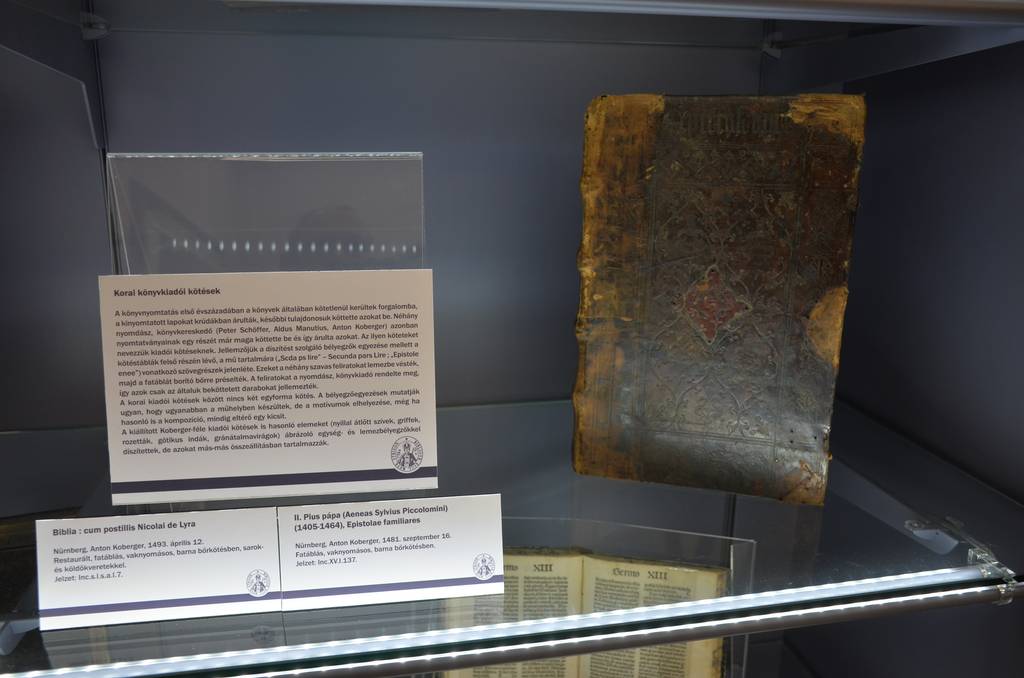 Korai könyvkiadói kötések
A könyvnyomtatás első évszázadában a könyvek általában kötetlenül kerültek forgalomba,
a kinyomtatott lapokat krúdákban árulták, későbbi tulajdonosuk köttette azokat be. Néhány
nyomdász, könyvkereskedő (Peter Schöffer, Aldus Manutius, Anton Koberger) azonban
nyomtatványainak egy részét már maga köttette be és így árulta azokat. Az ilyen köteteket
nevezzük kiadói kötéseknek. Jellemzőjük a díszítést szolgáló bélyegzők egyezése mellett a
kötéstáblák felső részén lévő, a mű tartalmára („Scda ps lire” – Secunda pars Lire ; „Epistole
enee”) vonatkozó szövegrészek jelenléte. Ezeket a néhány szavas feliratokat lemezbe vésték,
majd a fatáblát borító bőrre préselték. A feliratokat a nyomdász, könyvkiadó rendelte meg,
így azok csak az általuk beköttetett darabokat jellemezték.
A korai kiadói kötések között nincs két egyforma kötés. A bélyegzőegyezések mutatják
ugyan, hogy ugyanabban a műhelyben készültek, de a motívumok elhelyezése, még ha
hasonló is a kompozíció, mindig eltérő egy kicsit.
A kiállított Koberger-féle kiadói kötések is hasonló elemeket (nyíllal átlőtt szívek, griffek,
rozetták, gótikus indák, gránátalmavirágok) ábrázoló egység- és lemezbélyegzőkkel
díszítettek, de azokat más-más összeállításban tartalmazzák.
Biblia : cum postillis Nicolai de Lyra
Nürnberg, Anton Koberger, 1493. április 12.
Restaurált, fatáblás, vaknyomásos, barna bőrkötésben, sarok-
és köldökveretekkel.
Jelzet: Inc.s.l.s.a.l.7.
II. Pius pápa (Aeneas Sylvius Piccolomini)
(1405-1464), Epistolae familiares
Nürnberg, Anton Koberger, 1481. szeptember 16.
Fatáblás, vaknyomásos, barna bőrkötésben.
Jelzet: Inc.XV.I.137.
XIII
Sermo XIII